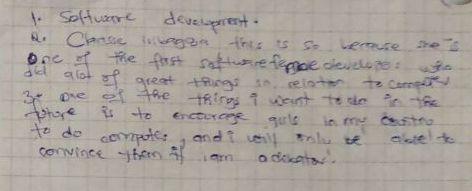 1. Software development.
2. this is so because she is
One of the first software female developers who
did alot of great things in relation to computer
3. one of the things i want to do in the
future is to encourage girls in my
to do computer, and i will only be able to
convince them if i am